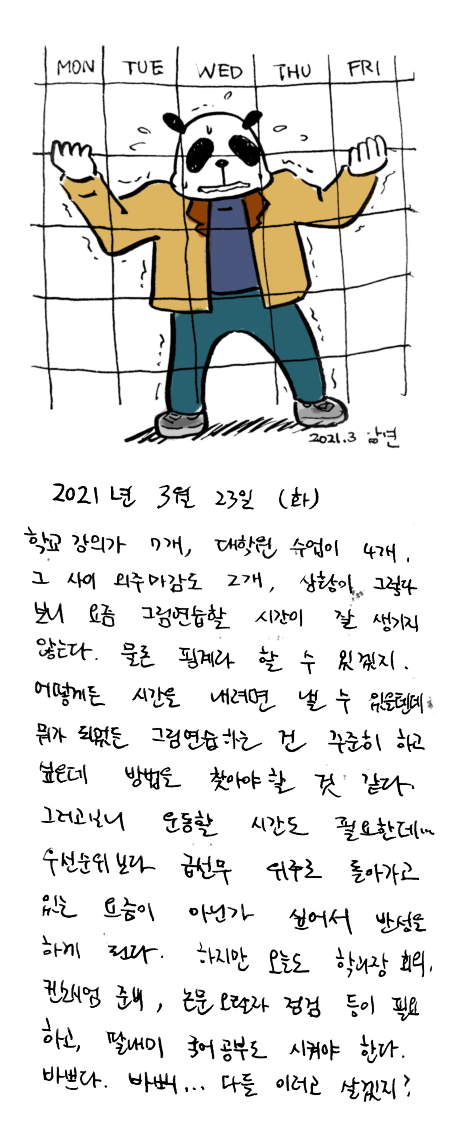 MON TUE WED THU FRI
2021.3 남연
2021년 3월 23일 (화)
학교 강의가 7개, 대학원 수업이 4개,
그 사이 외주마감도 2개, 상황이 그렇다
보니 요즘 그림연습할 시간이 잘 생기지
않는다. 물론 핑계라 할 수 있겠지.
어떻게든 시간을 내려면 낼 수 있을텐데
뭐가 되었든 그림연습하는 건 꾸준히 하고
싶은데 방법을 찾아야 할 것 같다.
그러고보니 운동할 시간도 필요한데...
우선순위보다 급선무 위주로 돌아가고
있는 요즘이 아닌가 싶어서 반성을
하게 된다. 하지만 오늘도 학과장 회의,
컨소시엄 준비, 논문 오탈자 점검 등이 필요
하고, 딸내미 국어 공부도 시켜야 한다.
바쁘다. 바뻐... 다들 이러고 살겠지?